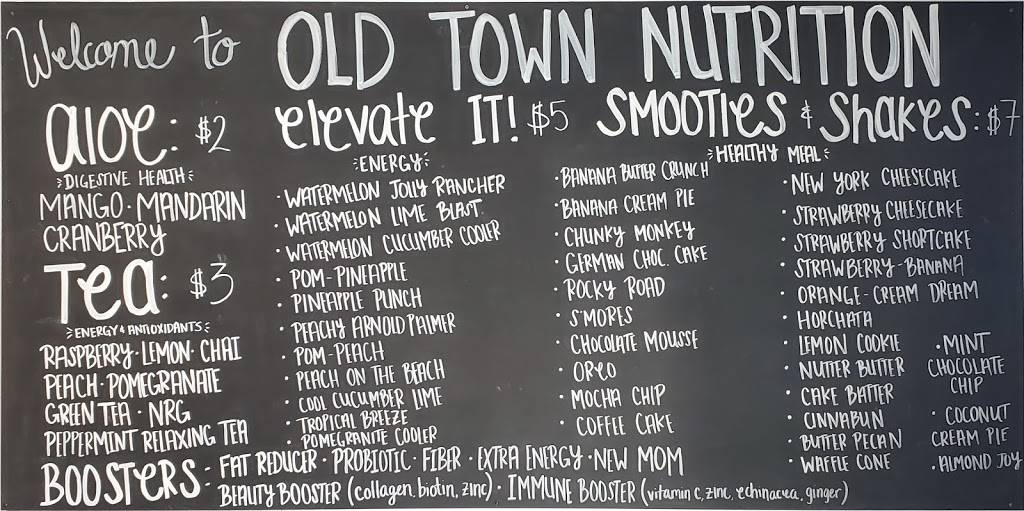 Welcome to OLD TOWN NUTRITION
aloe: $2
DIGESTIVE HEALTH
MANGO · MANDARIN
CRANBERRY
Tea: $3
ENERGY & ANTIOXIDANTS
RASPBERRY · LEMON · CHAI
PEACH · POMEGRANATE
GREEN TEA · NRG
PEPPERMINT RELAXING TEA
elevate IT! $5
ENERGY
· WATERMELON JOLLY RANCHER
· WATERMELON LIME BLAST
· WATERMELON CUCUMBER COOLER
· POM-PINEAPPLE
· PINEAPPLE PUNCH
· PEACHY ARNOLD PALMER
· POM-PEACH
· PEACH ON THE BEACH
· COOL CUCUMBER LIME
· TROPICAL BREEZE
· POMEGRANITE COOLER
SMOOTIES & SHAKES: $7
HEALTHY MEAL
· BANANA BUTTER CRUNCH
· BANANA CREAM PIE
· CHUNKY MONKEY
· GERMAN CHOC. CAKE
· ROCKY ROAD
· S'MORES
· CHOCOLATE MOUSSE
· OREO
· MOCHA CHIP
· COFFEE CAKE
· NEW YORK CHEESECAKE
· STRAWBERRY CHEESECAKE
· STRAWBERRY SHORTCAKE
· STRAWBERRY-BANANA
· ORANGE-CREAM DREAM
· HORCHATA
· LEMON COOKIE
· NUTTER BUTTER
· CAKE BATTER
· CINNABUN
· BUTTER PECAN
· WAFFLE CONE
· MINT
CHOCOLATE
CHIP
· COCONUT
CREAM PIE
· ALMOND JOY
BOOSTERS - FAT REDUCER · PROBIOTIC · FIBER · EXTRA ENERGY · NEW MOM
BEAUTY BOOSTER (collagen, biotin, zinc) · IMMUNE BOOSTER (vitamin c, zinc, echinacea, ginger)